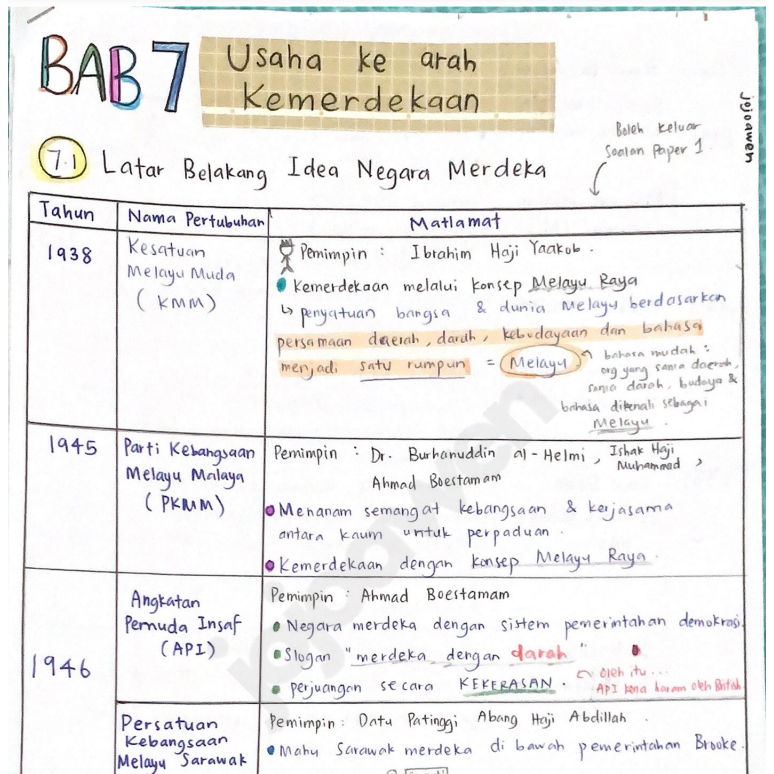 BAB 7 Usaha ke arah
Kemerdekaan
jojoawen
Boleh keluar
Soalan Paper 1
7.1 Latar Belakang Idea Negara Merdeka
Tahun
Nama Pertubuhan
Matlamat
1938
Kesatuan
Melayu Muda
(KMM)
Pemimpin : Ibrahim Haji Yaakob.
Kemerdekaan melalui konsep Melayu Raya
↳ penyatuan bangsa & dunia Melayu berdasarkan
persamaan daerah, darah, kebudayaan dan bahasa
menjadi satu rumpun = Melayu
bahasa mudah :
org yang sama daerah,
sama darah, budaya &
bahasa dikenali sebagai
Melayu.
1945
Parti Kebangsaan
Melayu Malaya
(PKMM)
Pemimpin : Dr. Burhanuddin al-Helmi, Ishak Haji
Muhammad,
Ahmad Boestamam
Menanam semangat kebangsaan & kerjasama
antara kaum untuk perpaduan.
Kemerdekaan dengan konsep Melayu Raya.
1946
Angkatan
Pemuda Insaf
(API)
Pemimpin : Ahmad Boestamam
Negara merdeka dengan sistem pemerintahan demokrasi
Slogan "merdeka dengan darah"
perjuangan secara KEKERASAN.
oleh itu...
API kena haram oleh British
Persatuan
Kebangsaan
Melayu Sarawak
Pemimpin : Datu Patinggi Abang Haji Abdillah.
Mahu Sarawak merdeka di bawah pemerintahan Brooke.
jojoawen